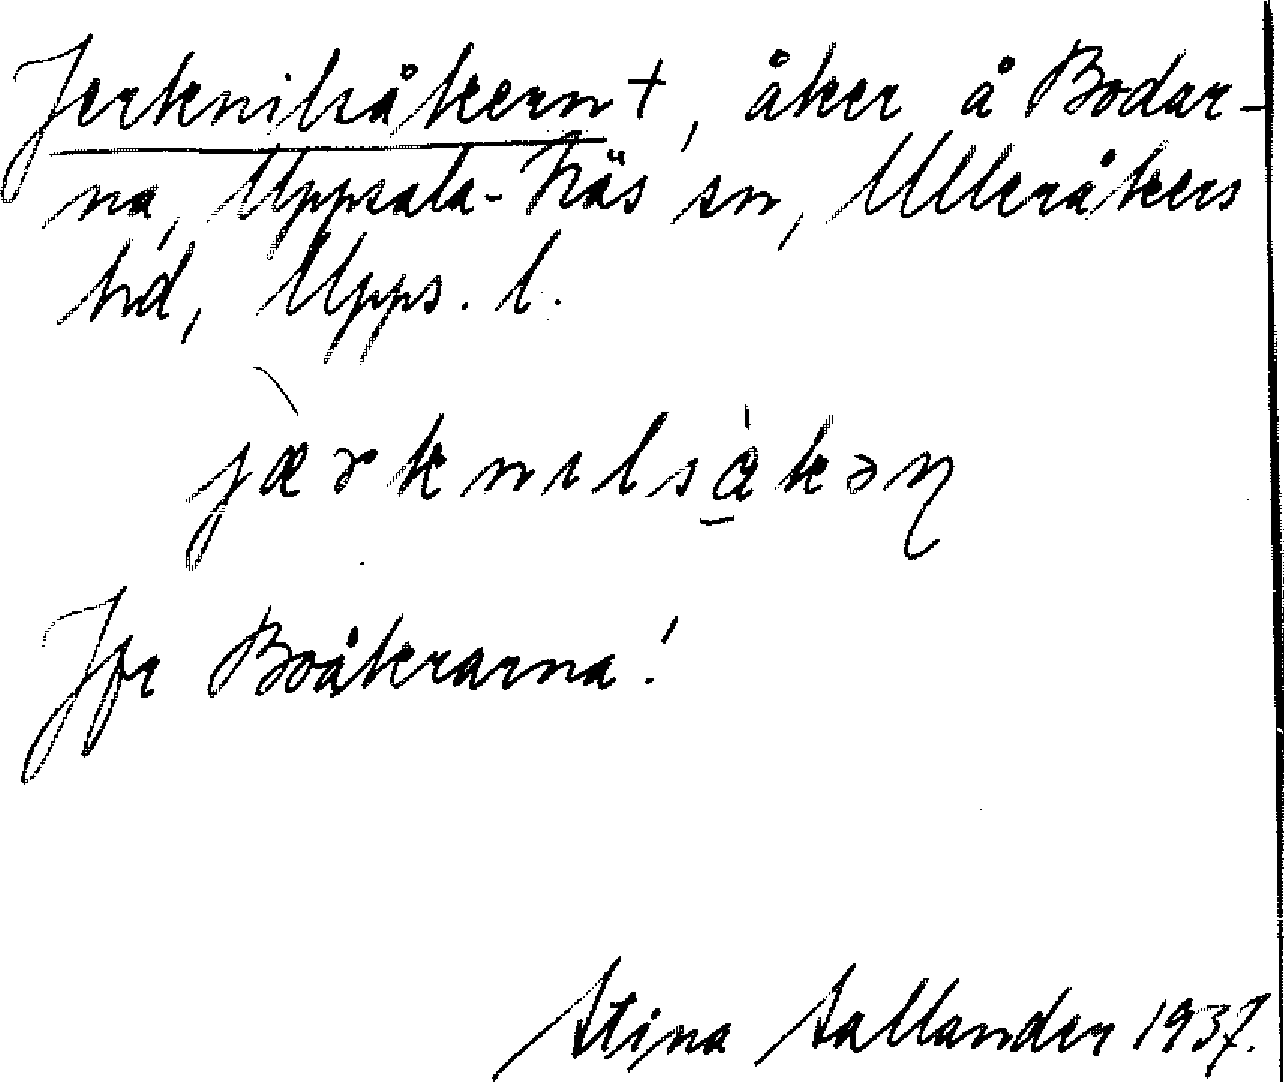 Jerknilsåkern +, åker å Bodar-
na, Uppsala-Näs sn, Ulleråkers
hd, Upps. l.
jærknilsåkəɳ
Jfr Boåkrarna!
Stina Sallander 1937.